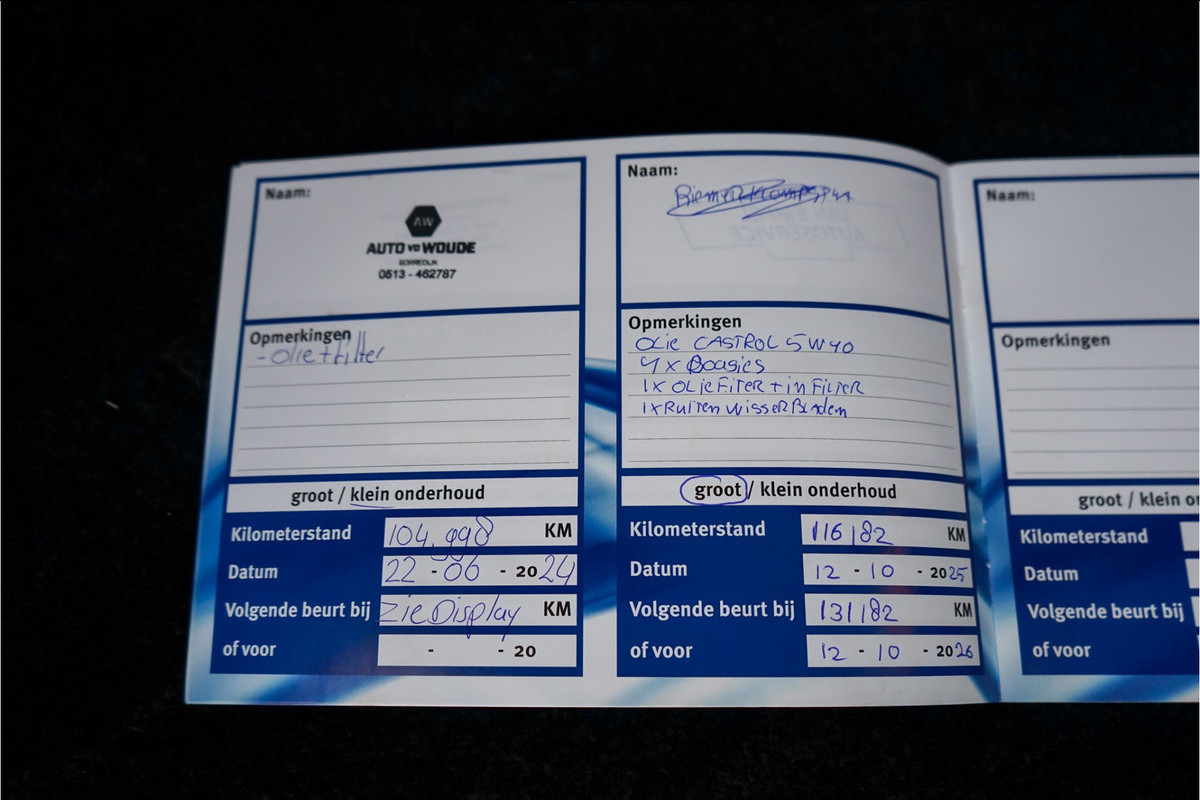 Naam:
AW
AUTO VD WOUDE
0513 - 462787
Opmerkingen
- Olie + filter
groot / klein onderhoud
Kilometerstand 104.998 KM
Datum 22 - 06 - 2024
Volgende beurt bij Zie Display KM
of voor - - 20
Naam:
AUTOSERVICE
Opmerkingen
OLie CASTROL 5W40
4x Bougies
1x OLieFiTER + inFiLTER
1x RuiTen wisser BLadem
groot / klein onderhoud
Kilometerstand 116182 KM
Datum 12 - 10 - 2025
Volgende beurt bij 131182 KM
of voor 12 - 10 - 2026
Naam:
Opmerkingen
groot / klein o
Kilometerstand
Datum
Volgende beurt bij
of voor